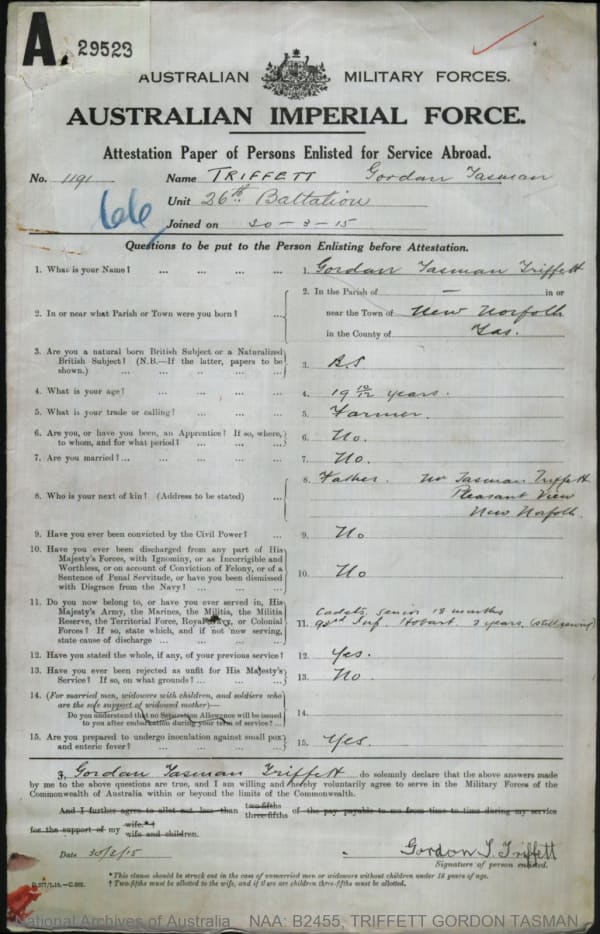 A. 29523
AUSTRALIAN MILITARY FORCES.
AUSTRALIAN IMPERIAL FORCE.
Attestation Paper of Persons Enlisted for Service Abroad.
No. 1191 Name TRIFFETT Gordan Tasman
66 Unit 26th Baltation
Joined on 30-3-15
Questions to be put to the Person Enlisting before Attestation.
1. What is your Name? ... ... ... ... 1. Gordan Tasman Triffett
2. In or near what Parish or Town were you born? ... 2. In the Parish of — in or
near the Town of New Norfolk
in the County of Tas.
3. Are you a natural born British Subject or a Naturalized
British Subject? (N.B.—If the latter, papers to be
shown.) ... ... ... ... ... 3. B.S
4. What is your age? ... ... ... ... 4. 19 10/12 years.
5. What is your trade or calling? ... ... ... 5. Farmer.
6. Are you, or have you been, an Apprentice? If so, where,
to whom, and for what period? ... ... ... 6. No.
7. Are you married? ... ... ... ... 7. No.
8. Who is your next of kin? (Address to be stated) ... 8. Father. Mr Tasman Triffett
Pleasant View
New Norfolk.
9. Have you ever been convicted by the Civil Power? ... 9. No
10. Have you ever been discharged from any part of His
Majesty's Forces, with Ignominy, or as Incorrigible and
Worthless, or on account of Conviction of Felony, or of a
Sentence of Penal Servitude, or have you been dismissed
with Disgrace from the Navy? ... ... ... 10. No
11. Do you now belong to, or have you ever served in, His
Majesty's Army, the Marines, the Militia, the Militia
Reserve, the Territorial Force, Royal Navy, or Colonial
Forces? If so, state which, and if not now serving,
state cause of discharge ... ... ... ... 11. Cadets, senior 18 months
93rd Inf. Hobart. 2 years, (still serving)
12. Have you stated the whole, if any, of your previous service? 12. Yes.
13. Have you ever been rejected as unfit for His Majesty's
Service? If so, on what grounds? ... ... ... 13. No
14. (For married men, widowers with children, and soldiers who
are the sole support of widowed mother)—
Do you understand that no Separation Allowance will be issued
to you after embarkation during your term of service? ... 14.
15. Are you prepared to undergo inoculation against small pox
and enteric fever? ... ... ... ... 15. Yes.
I, Gordan Tasman Triffett do solemnly declare that the above answers made
by me to the above questions are true, and I am willing and hereby voluntarily agree to serve in the Military Forces of the
Commonwealth of Australia within or beyond the limits of the Commonwealth.
And I further agree to allot not less than two-fifths three-fifths of the pay payable to me from time to time during my service
for the support of my wife.*† wife and children.
Date 30/3/15 Gordon T Triffett
Signature of person enlisted.
* This clause should be struck out in the case of unmarried men or widowers without children under 18 years of age.
† Two-fifths must be allotted to the wife, and if there are children three-fifths must be allotted.
National Archives of Australia NAA: B2455, TRIFFETT GORDON TASMAN